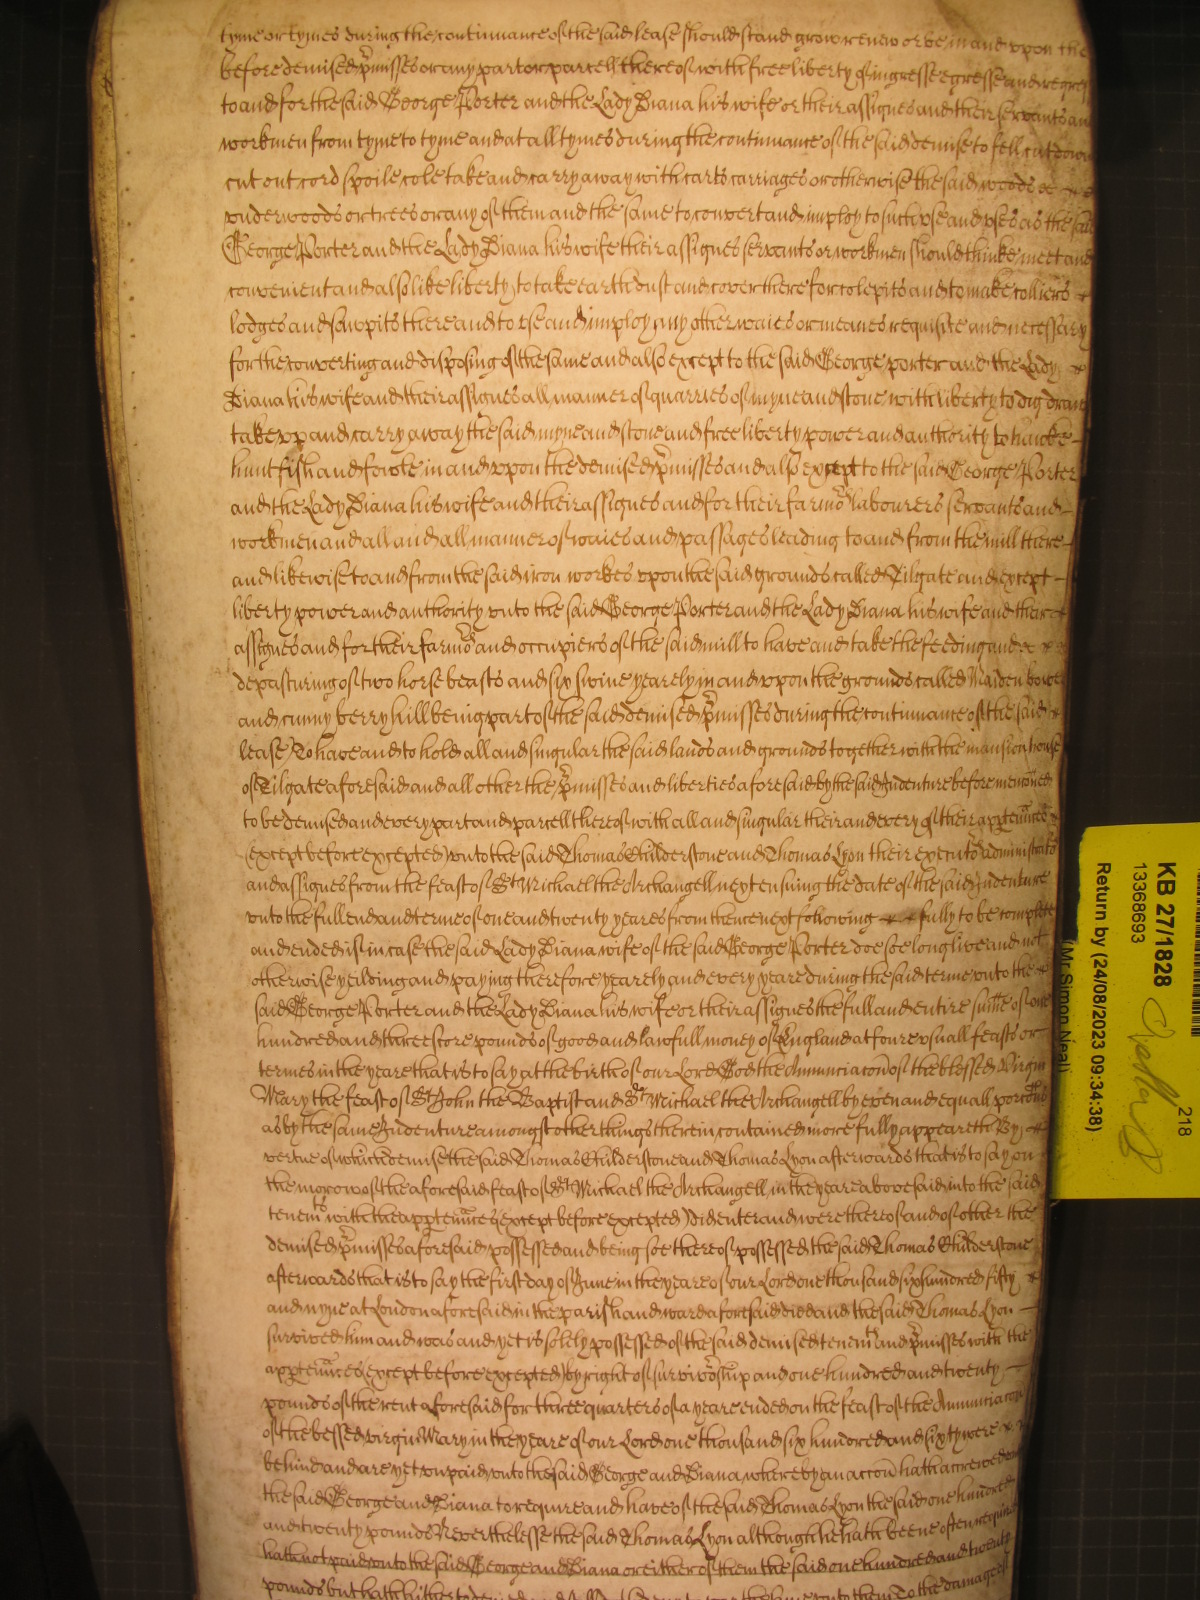 tyme or tymes during the continuance of the said lease should stand grow renew or be in and vpon the
before demised p̃misses or any part or parcell thereof with free liberty of ingresse egresse and regres
to and for the said George Porter and the Lady Diana his wife or their assignes and their servants an
workmen from tyme to tyme and at all tymes during the continuance of the said demise to fell cut down
cut out cord spoile cole take and carry away with carts carriages or otherwise the said woods
vnderwoods or trees or any of them and the same to convert and imploy to such vse and vses as the said
George Porter and the Lady Diana his wife their assignes servants or workmen should thinke meet and
convenient and also like liberty to take earth dust and cover there for colepits and to make colliers
lodges and sawpits there and to vse and imploy any other waies or meanes requisite and necessary
for the converting and disposing of the same and also except to the said George porter and the Lady
Diana his wife and their assignes all manner of quarries of myne and stone with liberty to dig draw
take vp and carry away the said myne and stone and free liberty power and authority to hawke
hunt fish and fowle in and vpon the demised p̃misses and also except to the said George Porter
and the Lady Diana his wife and their assignes and for their farmo͏ʳˢ labourers servants and
workmen and all and all manner of waies and passages leading to and from the mill there
and likewise to and from the said iron workes vpon the said grounds called Tilgate and except
liberty power and authority vnto the said George Porter and the Lady Diana his wife and their
assignes and for their farmoʳˢ and occupiers of the said mill to have and take the feeding and
depasturing of two horse beasts and six swine yearely in and vpon the grounds called Maiden bower
and cunny berry hill being part of the said demised p̃misses during the continuance of the said
lease To have and to hold all and singular the said lands and grounds together with the mansion house
of Tilgate aforesaid and all other the p̃misses and liberties aforesaid by the said Indenture before menc̃oned
to be demised and every part and parcell thereof with all and singular their and every of their apptenñces
(except before excepted) vnto the said Thomas Childerstone and Thomas Lyon their executoʳˢ administratoʳˢ
and assignes from the feast of Sᵗ Michael the Archangell next ensuing the date of the said Indenture
vnto the full end and terme of one and twenty yeares from thence next following fully to be complete
and ended if in case the said Lady Diana wife of the said George Porter doe soe long live and not
otherwise yeilding and paying therefore yearely and every yeare during the said terme vnto the
said George Porter and the Lady Diana his wife or their assignes the full and entire sum̃e of one
hundred and threescore pounds of good and lawfull money of England at foure vsuall feasts or
termes in the yeare that is to say at the birth of our Lord God the Annunciac̃on of the blessed Virgin
Mary the feast of Sᵗ John the Baptist and Sᵗ Michael the Archangell by even and equall porc̃ons
as by the same Indenture amongst other things therein contained more fully appeareth By
vertue of which demise the said Thomas Childerstone and Thomas Lyon afterwards that is to say on
the morow of the aforesaid feast of Sᵗ Michael the Archangell in the yeare abovesaid into the said
tenemᵗˢ with the apptenñces (except before excepted) did enter and were thereof and of other the
demised p̃misses aforesaid possessed and being soe thereof possessed the said Thomas Childerstone
afterwards that is to say the first day of June in the yeare of our Lord one thousand six hundred fifty
and nyne at London aforesaid in the parish and ward aforesaid died and the said Thomas Lyon
survived him and was and yet is solely possessed of the said demised tenemᵗˢ and p̃misses with the
apptenñces (except before excepted) by right of survivoʳship and one hundred and twenty
pounds of the rent aforesaid for three quarters of a yeare ended on the feast of the Annunciacon
of the blessed virgin Mary in the yeare of our Lord one thousand six hundred and sixty were
behind and are yet vnpaid vnto the said George and Diana whereby an acc̃on hath accrewed
the said George and Diana to require and have of the said Thomas Lyon the said one hundred
and twenty pounds Neverthelesse the said Thomas Lyon although he hath beene often required
hath not paid vnto the said George and Diana or either of them the said one hundred and twenty
pounds but hath hitherto to the damage of
KB 27/1828
13368693
Return by (24/08/2023 09:34:38)
(Mr Simon Neal)
218